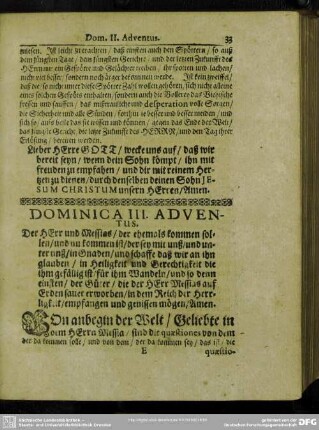 Dom. II. Adventus. 33
wiesen. Ist leicht zu erachten / daß einsten auch den Spöttern / so auß
dem jüngsten Tage / dem jüngsten Gerichte / und der letzten Zukunfft des
HErrn nur ein Gespötte
nicht viel besser / sondern noch ärger bekommen werde. Ist kein zweiffel /
daß die so nicht unter diese Spötter Zahl wollen gehören / sich nicht alleine
eines solchen Gespötts enthalten / sondern auch die Völlerey das Viehische
fressen und sauffen / das mißtrauliche und desperation volle Sorgen /
die Sicherheit und alle Sünden / fernhin je besser und besser meyden / und
sich so / auff beste das sie wissen und können / gegen das Ende der Welt /
das jüngste Gericht, die letzte Zukunfft des HERRN / und den Tag ihrer
Erlösung / bereiten werden.
Lieber HErre GOTT / weck uns auf / daß wir
bereit seyn / wenn dein Sohn kömpt / ihn mit
freuden zu empfahen / und dir mit reinem Her-
zen zu dienen / durch denselben deinen Sohn JE-
SUM CHRISTUM unsern HErren / Amen.
DOMINICA III. ADVEN-
TUS.
Der HErr und Messias / der ehemals kommen sol-
len / und nu kommen ist / der sey mit unß / und un-
ter unß / in Gnaden / und schaffe daß wir an ihn
glauben / in Heiligkeit und Gerechtigkeit die
ihm gefällig ist / für ihm Wandeln / und so denn
einsten / der Güter / die der HErr Messias auf
Erden sauer erworben / in dem Reich der Herr-
ligkeit empfangen und genissen mögen / Amen.
Von anbegin der Welt / Geliebte in
dem HErrn Messia / sind die quæstiones von dem
der da kommen solte / und von dem / der da kommen sey / das ist / die
E quæstio-